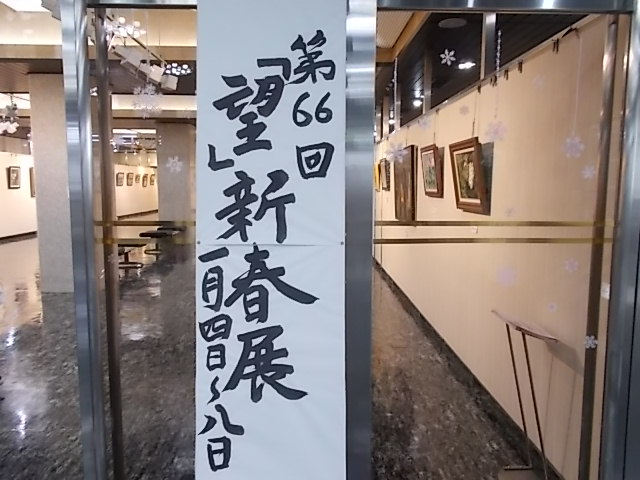 第66回
「望」新春展
一月四日~八日